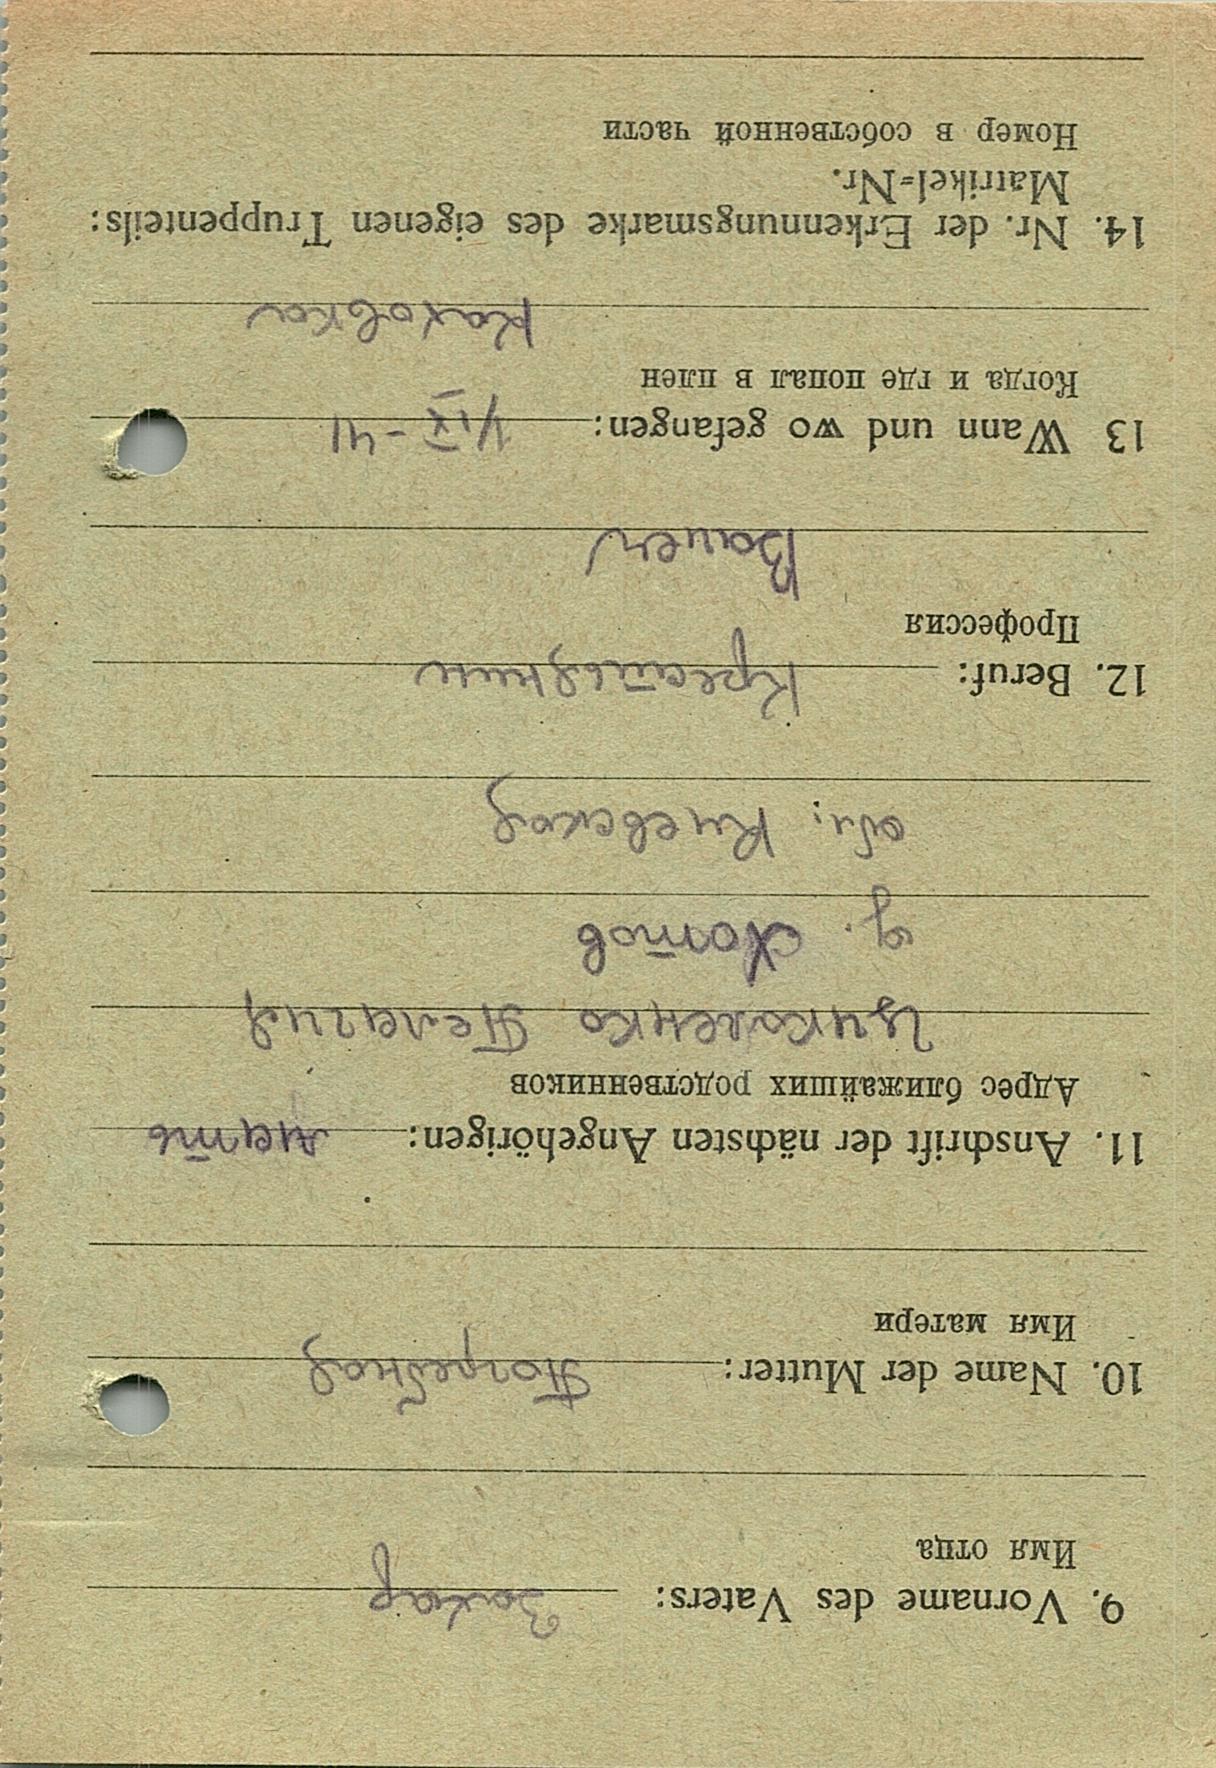 9. Vorname des Vaters: Захар
Имя отца
10. Name der Mutter: Погребная
Имя матери
11. Anschrift der nächsten Angehörigen: мать
Адрес ближайших родственников
Пелагия
д. Хотов
обл. Киевская
12. Beruf: Крестьянин
Профессия
Bauer
13 Wann und wo gefangen: 1/IX-41
Когда и где попал в плен
Каховка
14. Nr. der Erkennungsmarke des eigenen Truppenteils:
Matrikel=Nr.
Номер в собственной части